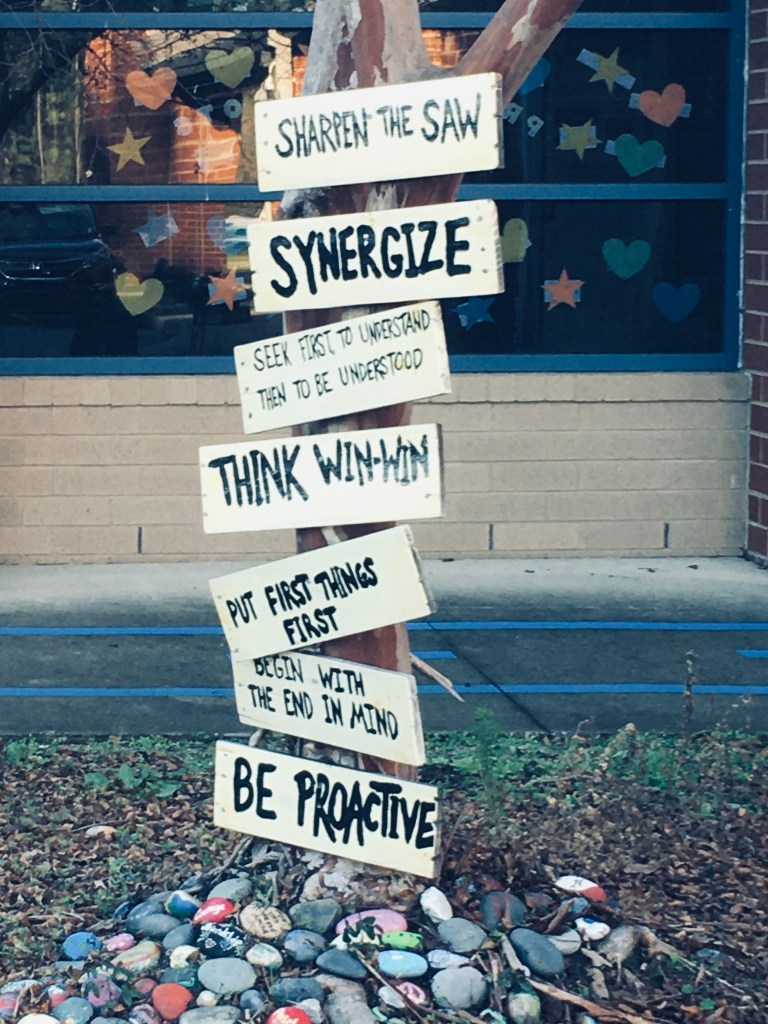 SHARPEN THE SAW
SYNERGIZE
SEEK FIRST TO UNDERSTAND
THEN TO BE UNDERSTOOD
THINK WIN-WIN
PUT FIRST THINGS
FIRST
BEGIN WITH
THE END IN MIND
BE PROACTIVE